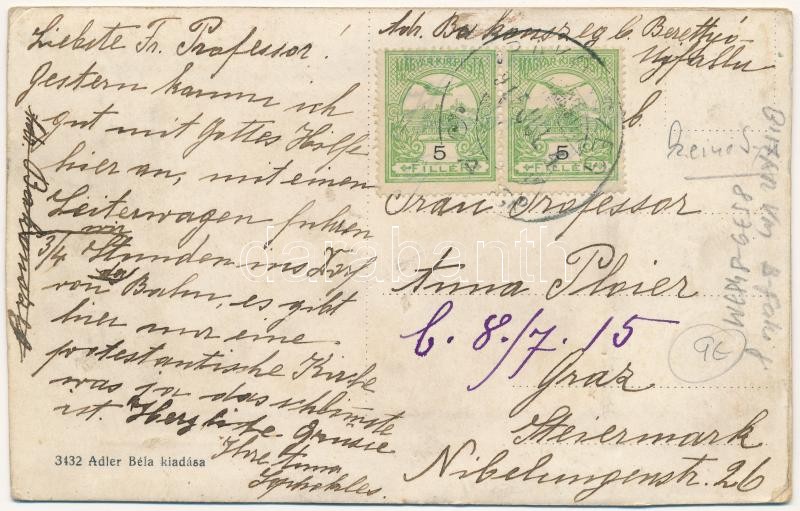 Liebste Fr. Professor!
Gestern kamm ich
gut mit Gottes Hilfe
hier an, mit einen
Leiterwagen fuhren
wir
3/4 Stunden ins Dorf
von der Bahn, es gibt
hier nur eine
protestantische Kirche
was ja das schlimmste
ist. Herzliche Grüsse
Ihre Anna
3432 Adler Béla kiadása
Adr. Bakonszeg b. Berettyó-
Ujfallu
MAGYAR KIR. POSTA
5
FILLÉR
MAGYAR KIR. POSTA
5
FILLÉR
Frau Professor
Anna Ploier
b. 8./7. 15
Graz
Steiermark
Nibelungenstr. 26
GE
darabanth